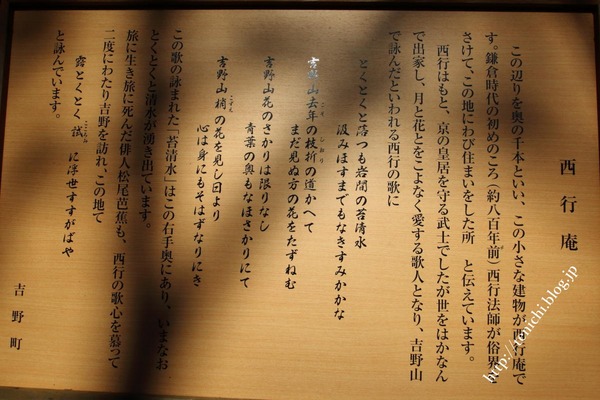 西行庵
この辺りを奥の千本といい、この小さな建物が西行庵で
す。鎌倉時代の初めのころ（約八百年前）西行法師が俗界を
さけて、この地にわび住まいをした所　と伝えています。
西行はもと、京の皇居を守る武士でしたが世をはかなん
で出家し、月と花とをこよなく愛する歌人となり、吉野山
で詠んだといわれる西行の歌に
とくとくと落つる岩間の苔清水
汲みほすまでもなきすみかかな
吉野山去年の枝折の道かへて
まだ見ぬ方の花をたずねむ
吉野山花のさかりは限りなし
青葉の奥もなほさかりにて
吉野山梢の花を見し日より
心は身にもそはずなりにき
この歌の詠まれた「苔清水」はこの右手奥にあり、いまなお
とくとくと清水が湧き出ています。
旅に生き旅に死んだ俳人松尾芭蕉も、西行の歌心を慕って
二度にわたり吉野を訪れ、この地で
露とくとく試に浮世すすがばや
と詠んでいます。
吉野町
http://tenichi.blog.jp